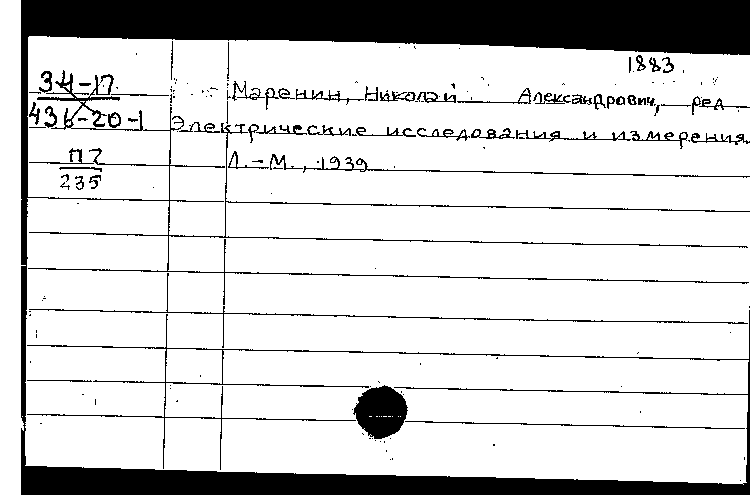 1883
34-17
436-20-1
П7
235
Маренин, Николай Александрович, ред.
Электрические исследования и измерения.
Л.-М., 1939